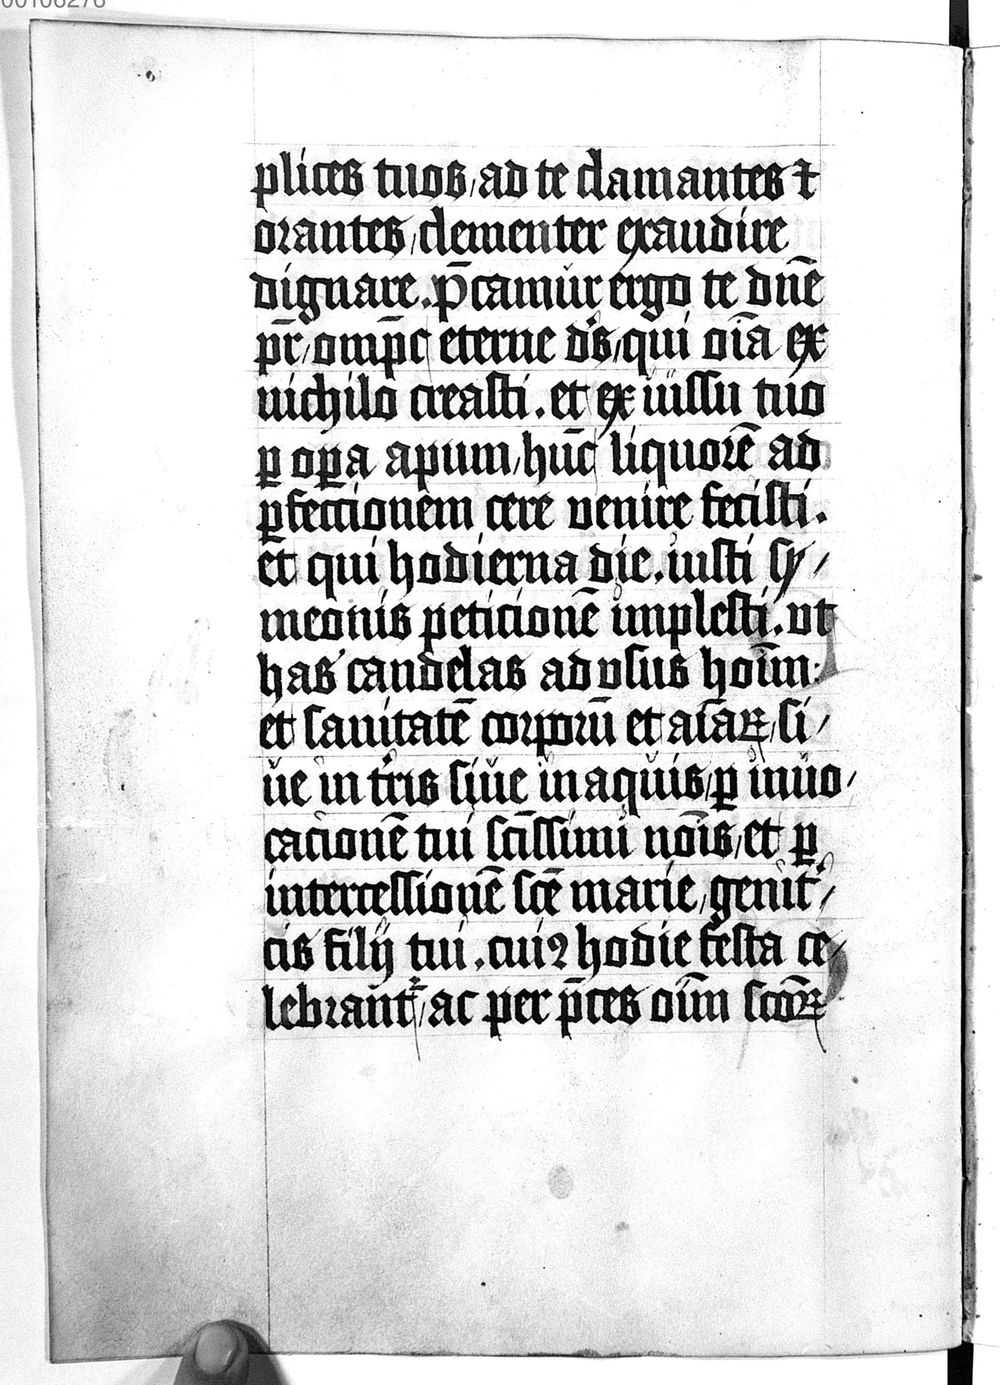 00106276
plices tuos, ad te clamantes ⁊
orantes, clementer exaudire
dignare. p̄camur ergo te dn̄e
pr̄, omp̄c eterne ds̄, qui oīa ex
nichilo creasti. et ex iussu tuo
ꝑ oꝑa apum, hūc liquorē ad
ꝑfectionem cere uenire fecisti.
et qui hodierna die. iusti sy/
meonis peticionē implesti. vt
has candelas ad vsus hoīm:
et sanitatē corporū et aīaꝝ, si/
ue in tr̄ris siue in aquis, ꝑ inuo/
cacionē tui scīssimi noīs, et ꝑ
intercessionē scē marie, genit͛/
cis filij tui. cuiꝰ hodie festa ce/
lebrant᷑, ac per p̄ces oīm scōꝝ